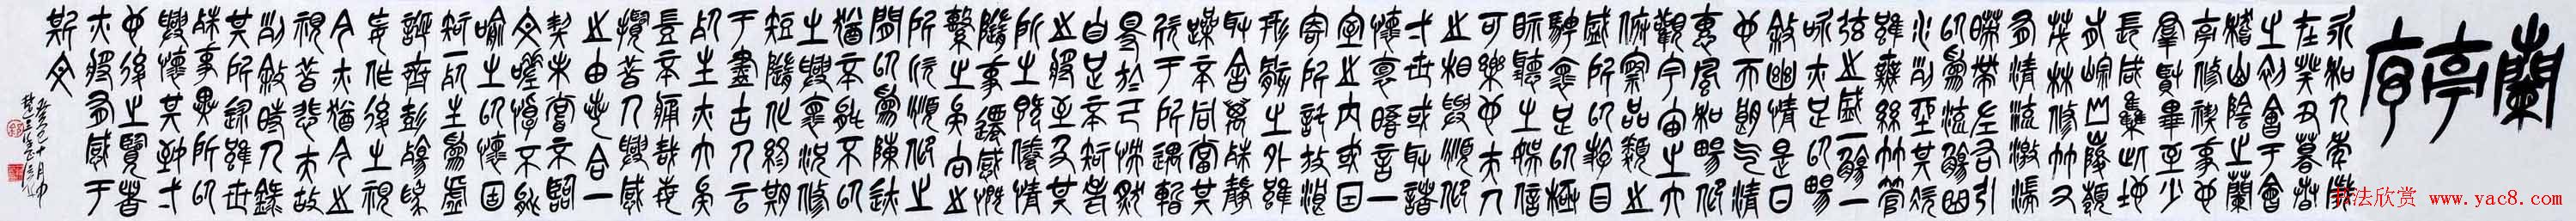 蘭亭序
永和九年歲
在癸丑暮春
之初會于會
稽山陰之蘭
亭修禊事也
羣賢畢至少
長咸集此地
有崇山峻領
茂林修竹又
有清流激湍
暎帶左右引
以為流觴曲
水列坐其次
雖無絲竹管
弦之盛一觴一
詠亦足以暢
敘幽情是日
也天朗氣清
惠風和暢仰
觀宇宙之大
俯察品類之
盛所以遊目
騁懷足以極
視聽之娛信
可樂也夫人
之相與俯仰
一世或取諸
懷抱悟言一
室之內或因
寄所託放浪
形骸之外雖
取舍萬殊靜
躁不同當其
欣于所遇暫
得於己怏然
自足不知老
之將至及其
所之既倦情
隨事遷感慨
繫之矣向之
所欣俯仰之
間以為陳跡
猶不能不以
之興懷況修
短隨化終期
于盡古人云
死生亦大矣
豈不痛哉每
攬昔人興感
之由若合一
契未嘗不臨
文嗟悼不能
喻之以懷固
知一死生為虛
誕齊彭殤為
妄作後之視
今亦猶今之
視昔悲夫故
列敘時人錄
其所錄雖世
殊事異所以
興懷其致一
也後之覽者
亦將有感于
斯文
书法欣赏 www.yac8.com